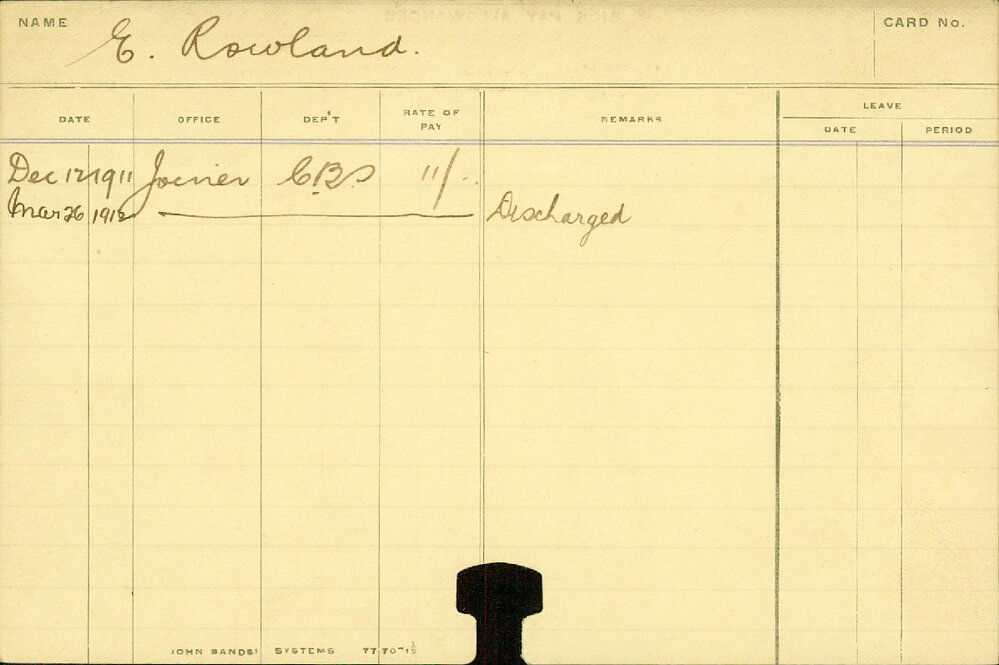 NAME E. Rowland. CARD No.
DATE OFFICE DEP'T RATE OF PAY REMARKS LEAVE
DATE PERIOD
Dec 12 1911 Joiner 11/-
Mar 26 1912 Discharged
JOHN SANDS' SYSTEMS 7770-